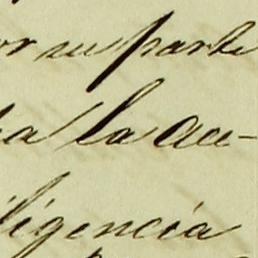 or su parte
a la au-
iligencia